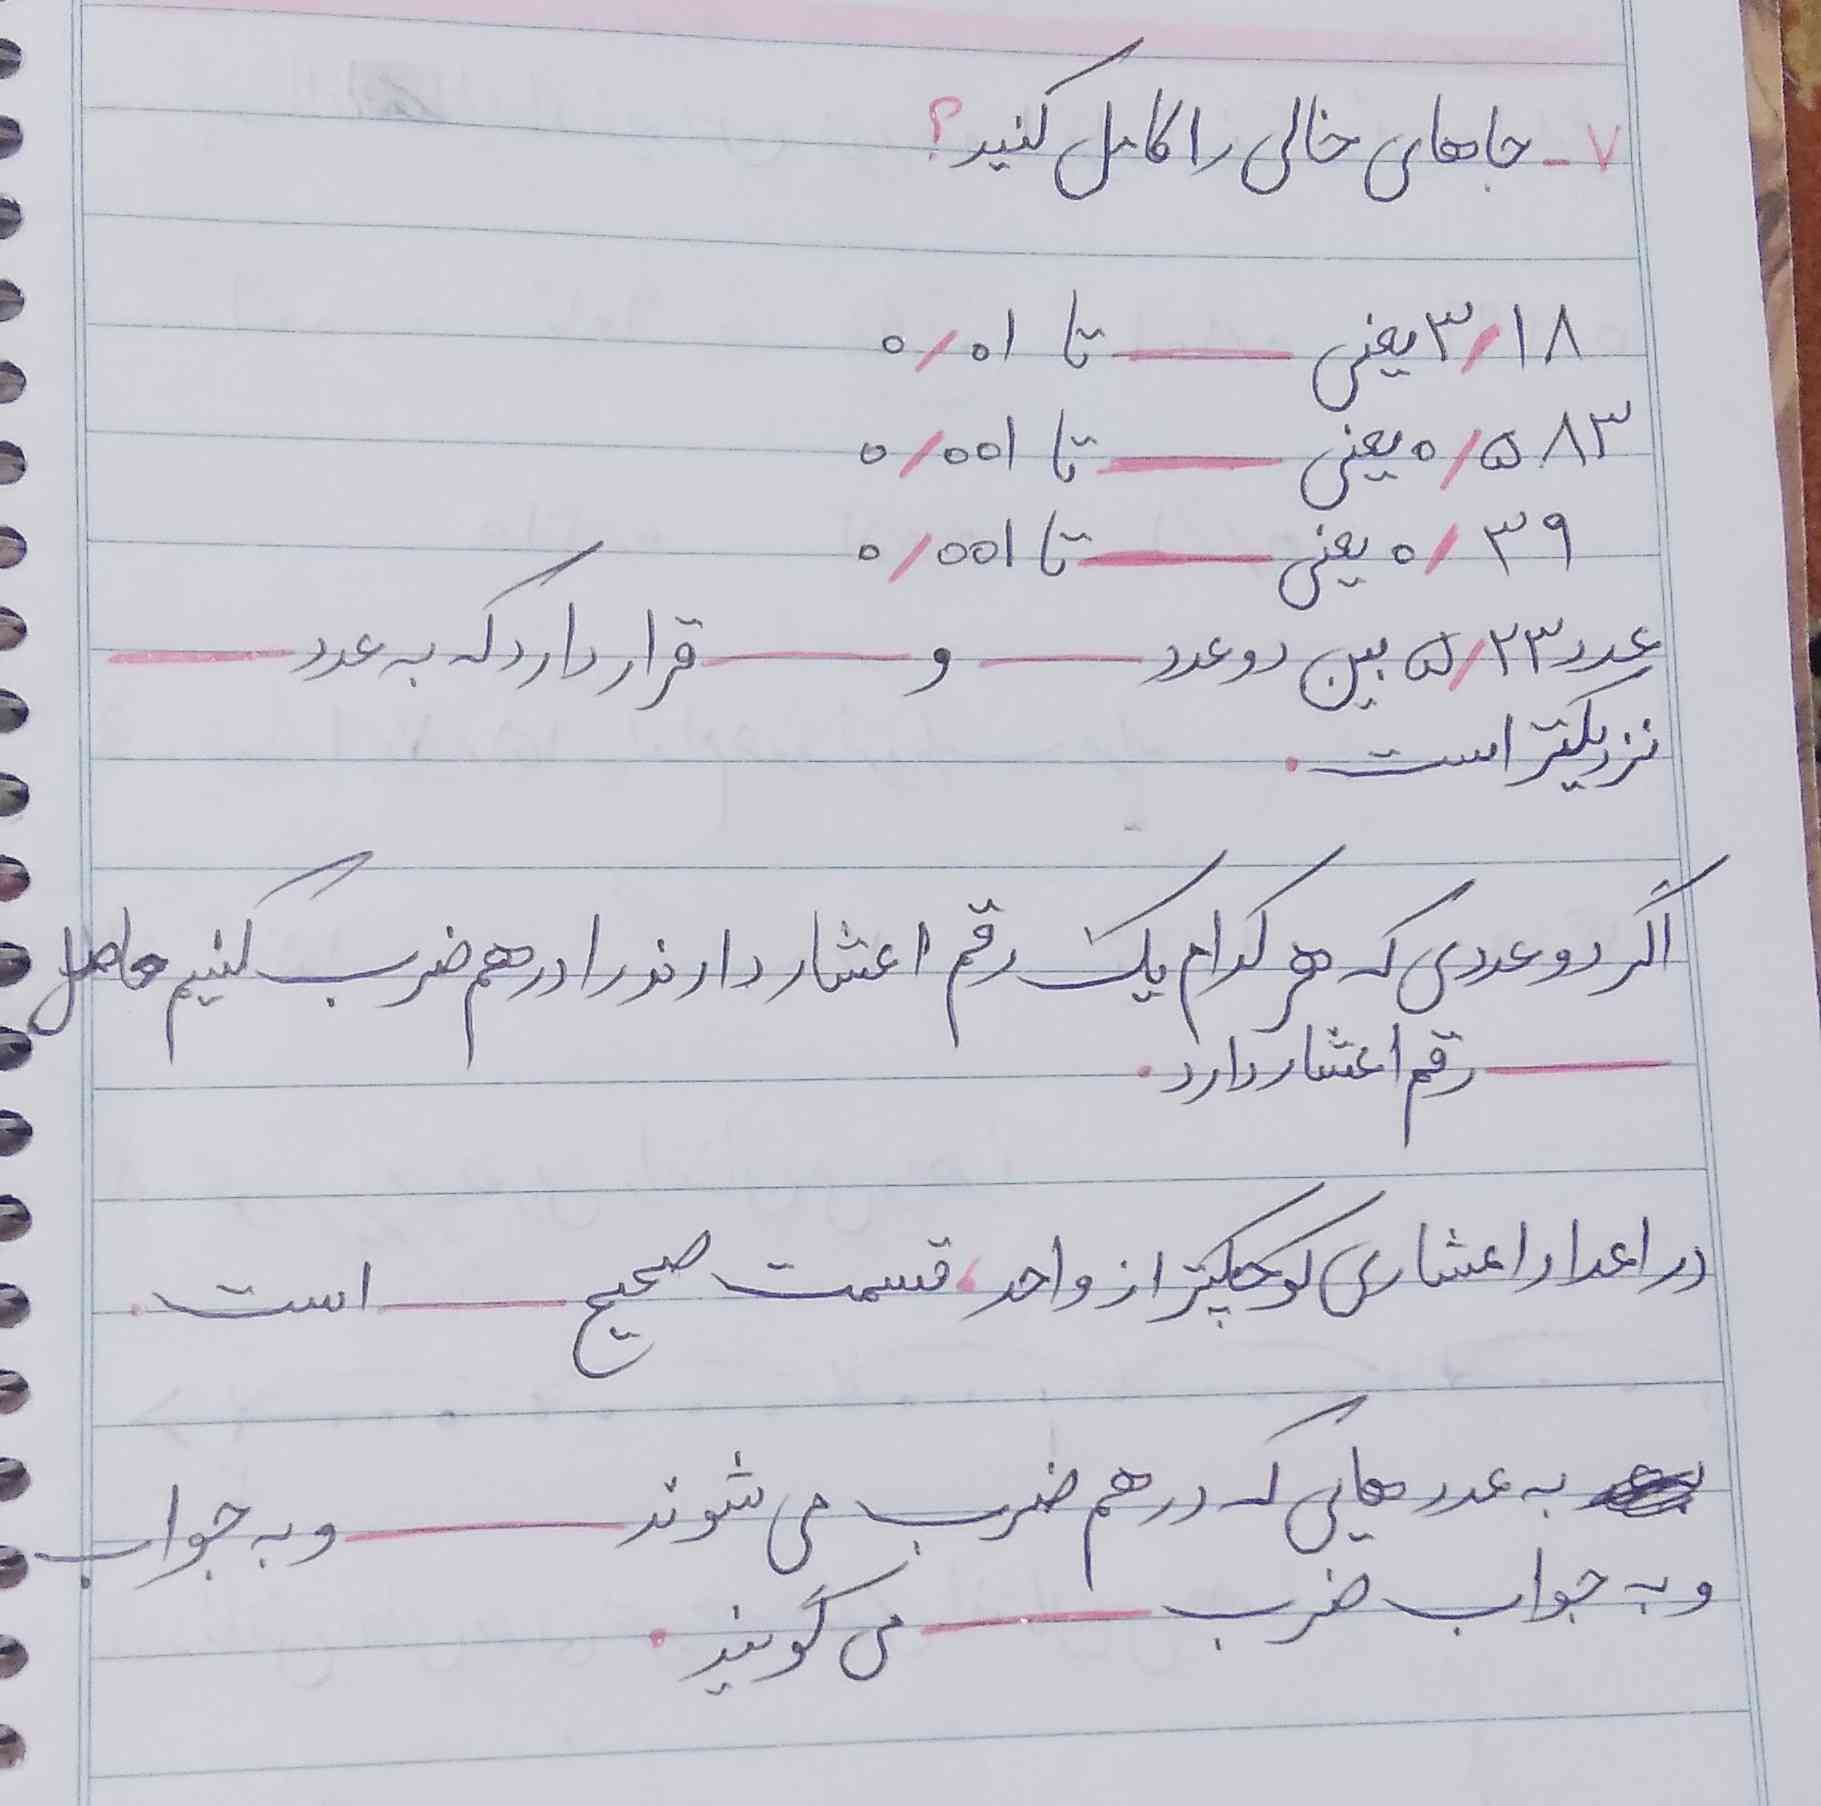 ۷- جاهای خالی را کامل کنید؟
۳/۱۸ یعنی ــــ تا ۰/۰۱
۰/۵۸۳ یعنی ــــ تا ۰/۰۰۱
۰/۳۹ یعنی ــــ تا ۰/۰۰۱
عدد ۵/۲۳ بین دو عدد ــــ و ــــ قرار دارد که به عدد ــــ
نزدیکتر است.
اگر دو عددی که هر کدام یک رقم اعشار دارند را در هم ضرب کنیم حاصل
ــــ رقم اعشار دارد.
در اعداد اعشاری کوچکتر از واحد، قسمت صحیح ــــ است.
به عدد هایی که در هم ضرب می شوند ــــ و به جواب
و به جواب ضرب ــــ می گویند.